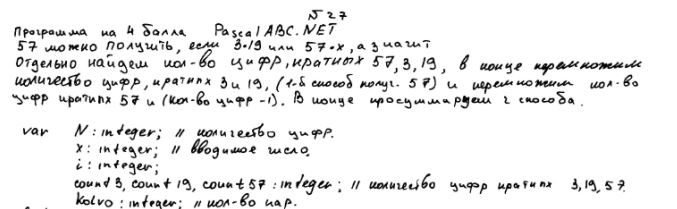 N 27
Программа на 4 балла PascalABC.NET
57 можно получить, если 3·19 или 57·x, а значит
Отдельно найдем кол-во цифр, кратных 57, 3, 19, в конце перемножим
количество цифр, кратных 3 и 19, (1-й способ получ. 57) и перемножим кол-во
цифр кратных 57 и (кол-во цифр -1). В конце просуммируем 2 способа.
var N: integer; // количество цифр.
x: integer; // вводимое число,
i: integer;
count 3, count 19, count 57 : integer; // количество цифр кратных 3,19,57.
kolvo : integer; // кол-во пар.